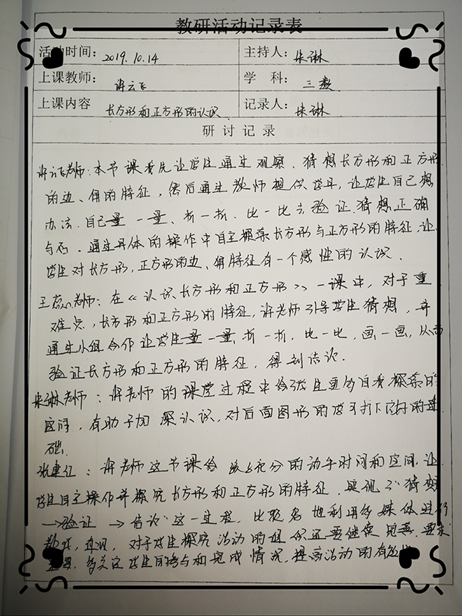 教研活动记录表
活动时间： 2019.10.14 主持人： 朱琳
上课教师： 许云飞 学 科： 三数
上课内容 长方形和正方形的认识 记录人： 朱琳
研 讨 记 录
老师：本节课首先让学生通过观察、猜想长方形和正方形
的边、角的特征，然后通过教师提供学具，让学生自己想
办法，自己量一量、折一折、比一比去验证猜想正确
与否。通过具体的操作中自主探索长方形与正方形的特征，让
学生对长方形，正方形的边、角特征有一个感性的认识．
老师：在《认识长方形和正方形》一课中，对于重
难点，长方形和正方形的特征，许老师引导学生猜想，并
通过小组合作让学生量一量，折一折，比一比，画一画，从而
验证长方形和正方形的特征，得到结论．
朱琳老师：许老师的课堂过程中给孩子更多自看探索的
空间，有助于加深认识，对后面图形的学习打下的基
础．
：许老师这节课给 充分的动手时间和空间，让
学生自主操作并探究长方形和正方形的特征，实现了"猜想
→验证→ 结论"这一过程，比较多地利用多媒体进行
教学，对于学生探究活动的组织还要继续
多关注学生的参与和完成情况，提高活动的有效性